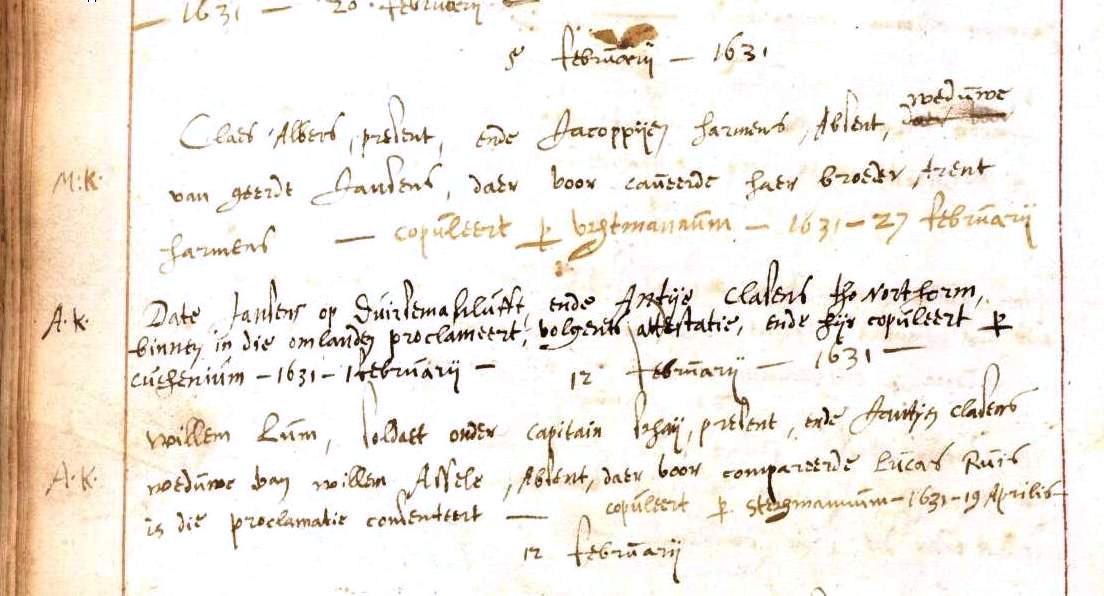 — 1631 — 20 · februarij —
5 februarij — 1631
Claes Albers, present, ende Jacoppijen harmens, Absent, weduwe
M:k· van geerdt Jansens, daer voor caveerde haer broeder, Arent
harmens — copuleert per — 1631 – 27 februarij
A·k· Date Jansens op ende Antije Clasens tho Northorm,
binnen in die omlanden proclameert, volgens attestatie, ende hijr copuleert per
— 1631 – 1 februarij —
12 februarij — 1631 —
Willem Lum, soldaet onder Capitain present, ende Clasens
A·k· weduwe van willem Assele, Absent, daer voor compareerde Lucas Ruis
is die proclamatie consenteert — copuleert per — 1631 – 19 Aprilis —
12 februarij